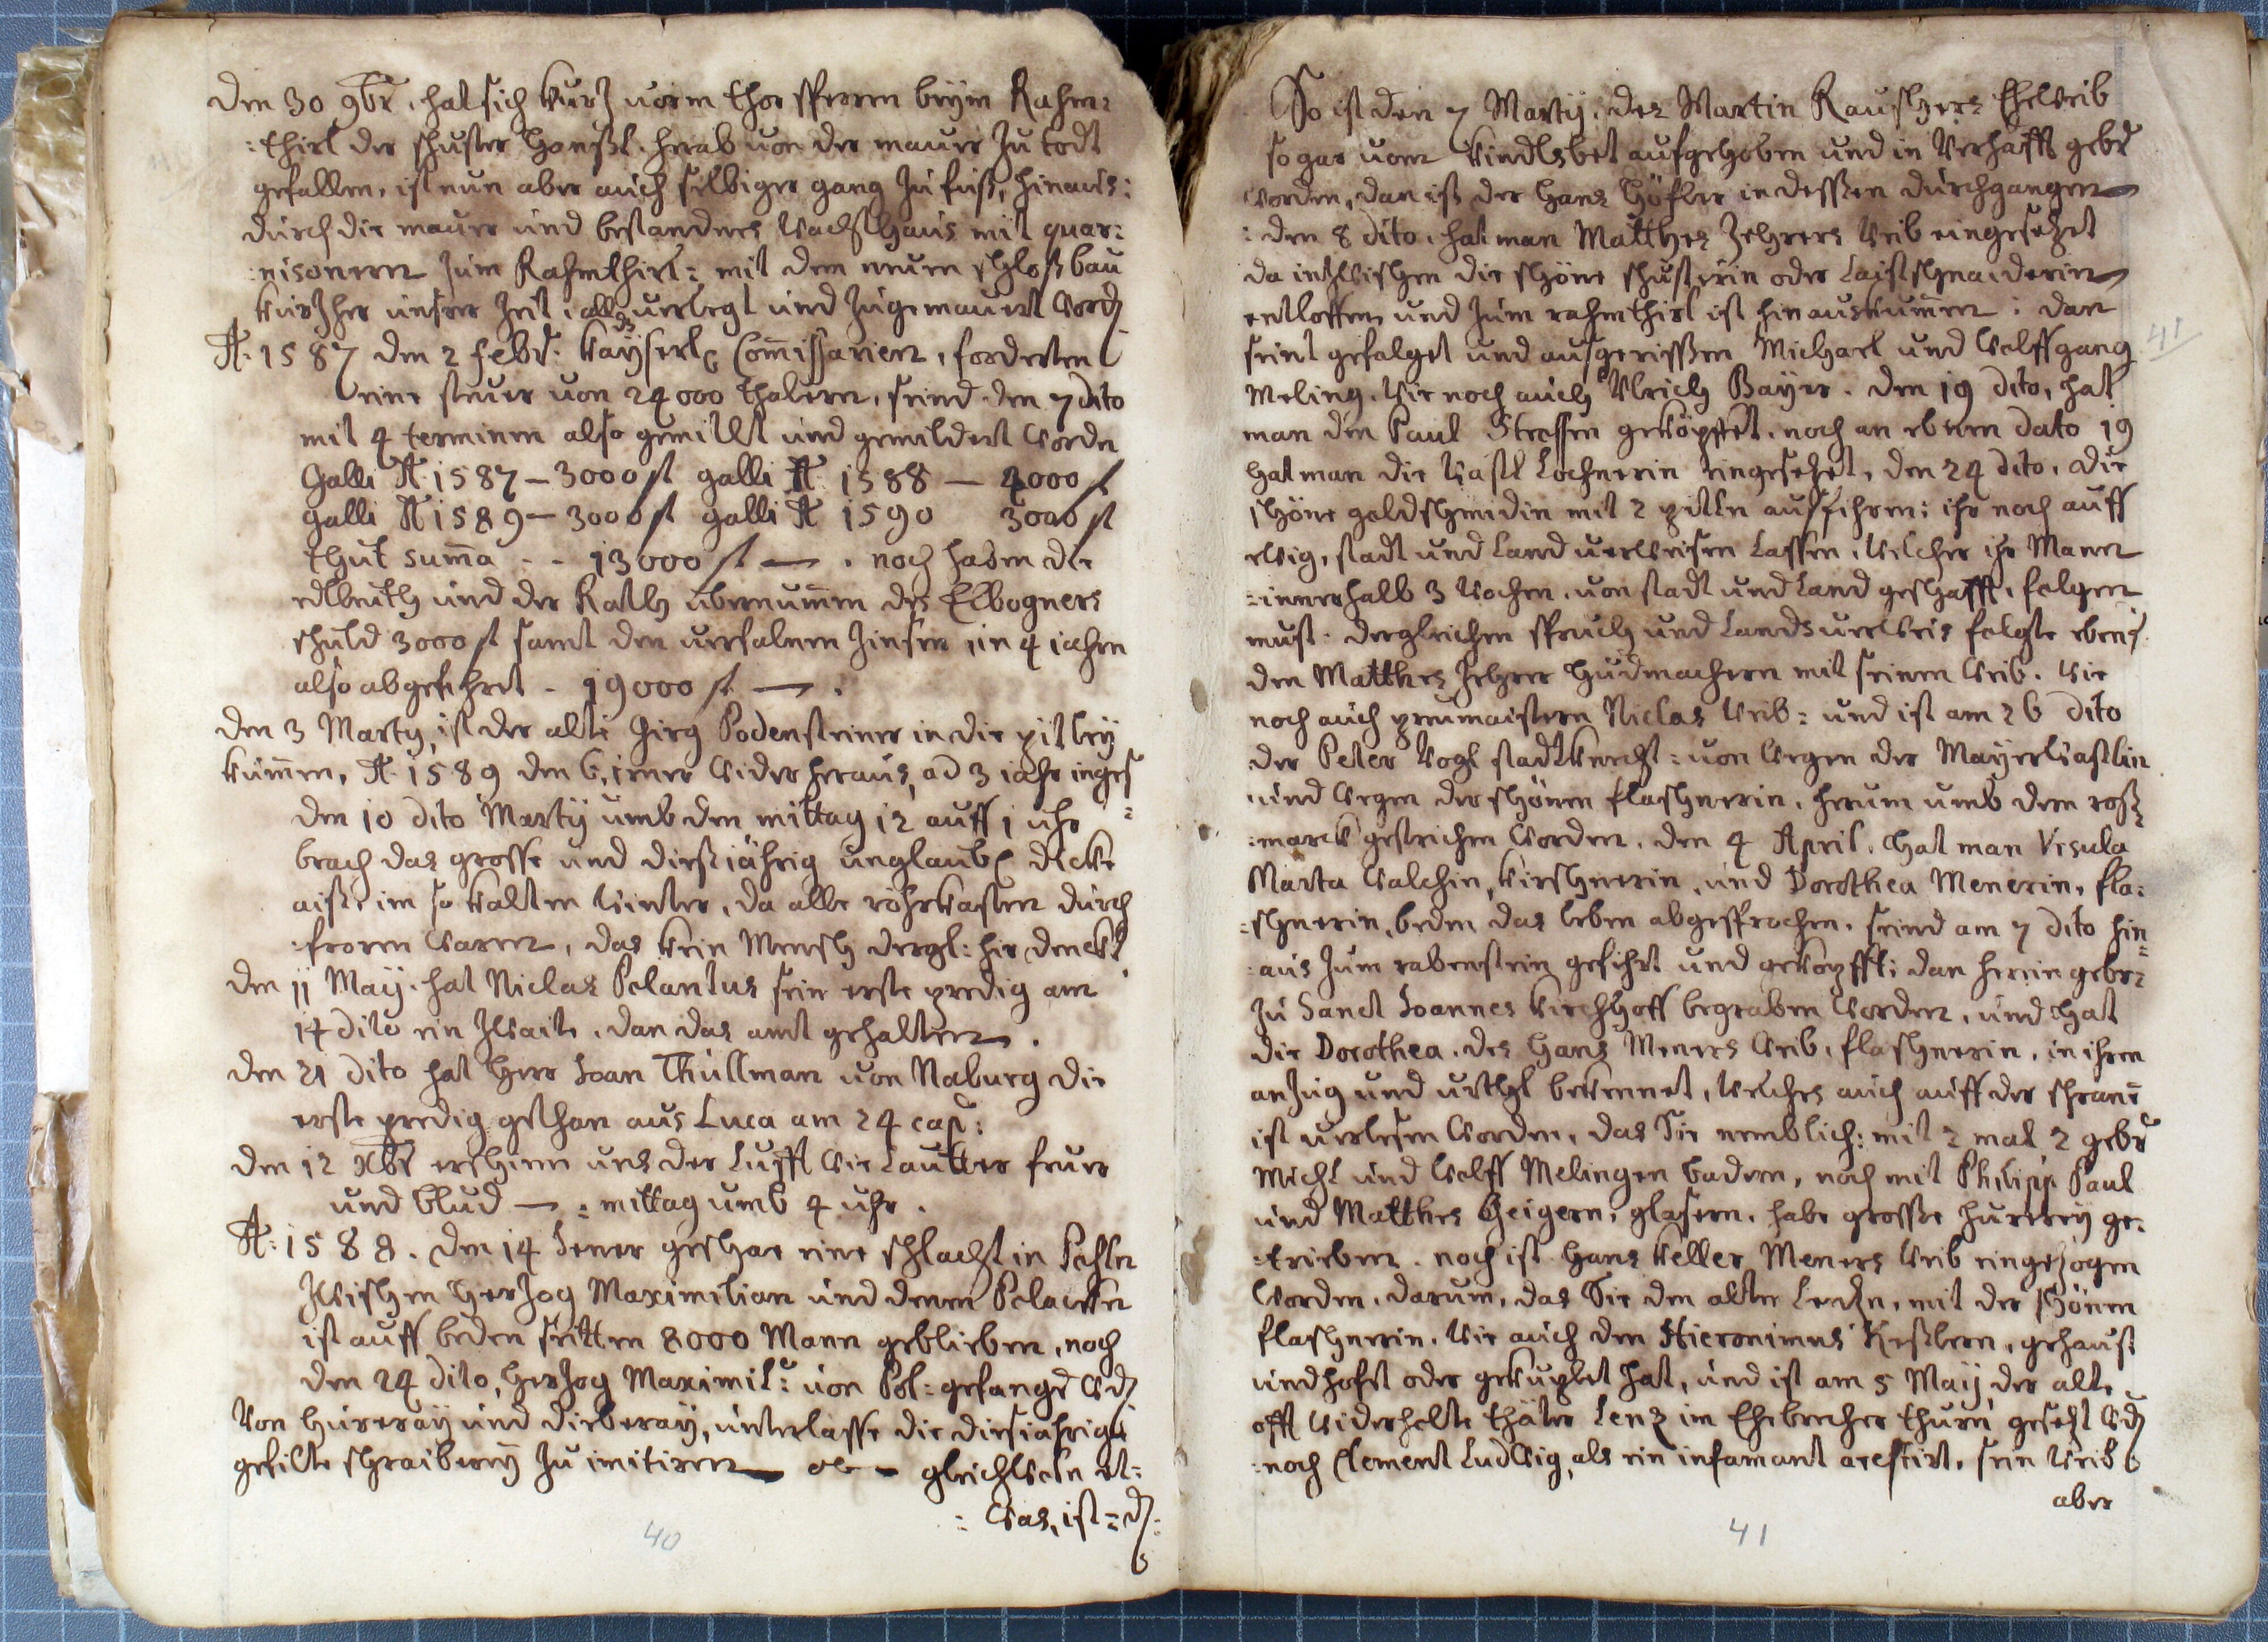 den 30 9br. hat sich kurtz vorm thor sperren beym Rahm=
=thirl der schuster Hanßl. herab von der mauer zu todt
gefallen, ist nun aber auch selbiger gang zu fuß, hinaus:
durch die mauer und bestandnes wachthaus mit quar:
:nisonern zum Rahmthirl: mit dem neuen schloß bau
kurtz her unser zeit, alls verlegt und zugemauert word
A: 1587 den 2 Febr: kayserl Commissarien, forderten
eine steuer von 24000 thalern, seind den 7 dito
mit 4 terminen also gewillt und gemildert worden
Galli A: 1587 – 3000 fl galli A: 1588 – 4000 f
galli A 1589 – 3000 fl galli A 1590 3000 fl
thut suma - - 13000 fl — . noch haben die
edlleuth und der Rath übernummen des Elbogners
schuld 3000 fl samt den verfalnen zinsen, in 4 jahren
also abgefihrt - 19000 fl — .
den 3 Marty, ist der alte Girg Podensteiner in die pitley
kummen, A: 1589 den 6, jener wider heraus, ad 3 jahr
den 10 dito Marty umb den mittag 12 auff 1 uhr
brach das grosse und dießjährig unglaubl dicke
aiße im so kalten winter, da alle röhrkasten durch
:froren waren, das kein Mensch dergl: hie denckt
den 11 May. hat Niclas Polantus sein erste predig am
14 dito ein zwaite, dan das amt gehalten.
den 21 dito hat Herr Joan Thullman von Naburg die
erste predig gethan aus Luca am 24 cap:
den 12 Xbr erschinn uns der Lufft wie Lautter feuer
und blud — : mittag umb 4 uhr.
A: 1588. den 14 Jener geschae eine schlacht in Pohln
zwischen Hertzog Maximilian und denen Polacken
ist auff beden seitten 8000 Mann gebliben, noch
den 24 dito, Hertzog Maximil: von Pol: gefangen
Von Hurerey und dieberay, unterlasse die diesjährige
gefilte schraiberey zu imitiren — gleichwohn et=
: was, ist
40
So ist den 7 Marty, des Martin Rauschers Eheweib
so gar vom kindlsbet aufgehoben und in verhafft gebr
worden, dan ist der Hans Höfler in dessen durchgangen
: den 8 dito, hat man Matthes Zehrers weib eingesetzet
da inzwischen die schöne schusterin oder Laistschnaiderin
entloffen, und zum rahmthirl ist hinauskummen: dan
seint gefolget und ausgerissen Michael und Wolffgang
Meling, wie noch auch Ulrich Bayer. den 19 dito, hat
41
man den Paul Strossen geköpffet. noch an eben dato 19
hat man die Lochnerin eingesetzet, den 24 dito, die
schöne goldschmidin mit 2 pitln ausfihren: ihr noch auff
ewig, stadt und Land verweisen Lassen, welcher ihr Mann
=innerhalb 3 wochen, von stadt und Land geschafft, folgen
must. dergleichen spruch und Lands verweis folgte
den Matthes Zehrer Hudmachern mit seinem weib. wie
noch auch preumaistern Niclas weib: und ist am 26 dito
der Peter Vogl stadtknecht: von wegen der
und wegen der schönen flaschnerin, herum umb den roß
:marck gestrichen worden. den 4 April. hat man Vrsula
Marta Walchin, kirschnerin, und Dorothea Menerin, fla:
:schnerin, beden das leben abgesprochen, seind am 7 dito hin=
:aus zum rabenstein gefihrt und geköpfft: dan herein gebr:
zu Sanct Joannes kirchhoff begraben worden, und hat
die Dorothea, des Hans Meners weib, flaschnerin, in ihrem
anzug und urthl bekennet, welches auch auff der schrane
ist verlesen worden, das Sie nemblich: mit 2 mal 2 gebr
Michl und Wolff Melingen badern, noch mit Philipp Paul
und Matthes Geigern, glasern, habe grosse hurerey ge:
:trieben. noch ist Hans keller Meners weib eingezogen
worden, darum, das Sie den alten Lentzn, mit der schönen
flaschnerin, wie auch den Hieronimus Keßlern, gehaust
und hoft oder gekuplet hat, und ist am 5 May der alte
offt widerholte thäter Lentz im Ehebrecher thurn gesetzt
:noch Clement Ludwig, als ein infamant arestirt, sein weib
aber
41